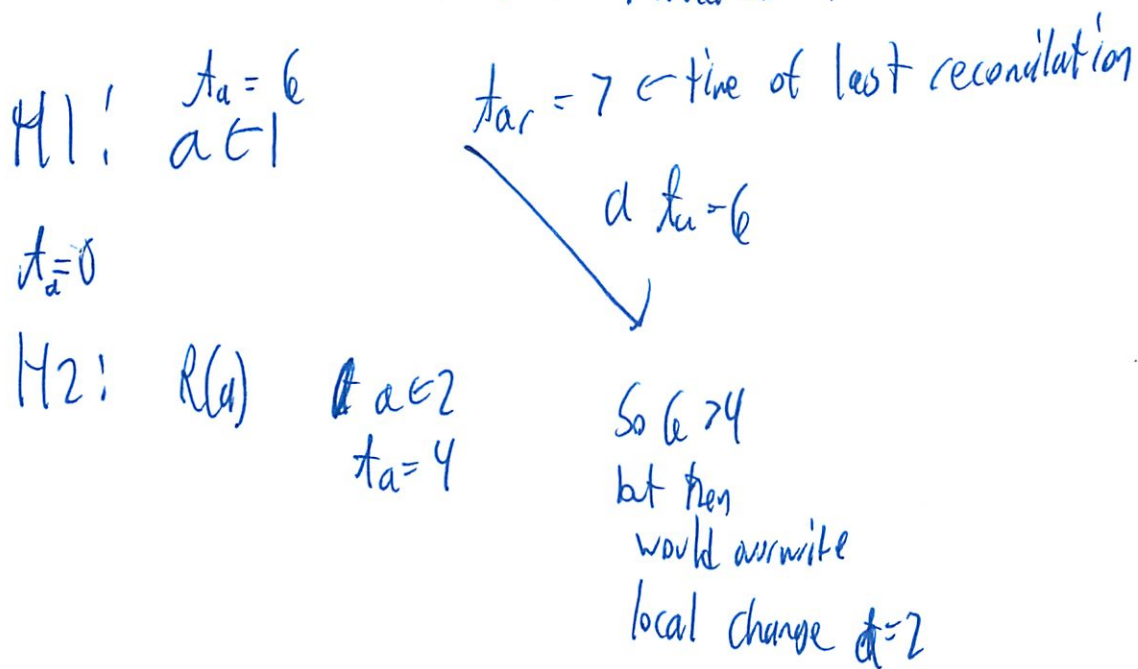 H1: tₐ = 6
a ← 1
tₐᵣ = 7 ← time of last reconcilation
a tₐ = 6
tₐ = 0
H2: R(a) a ← 2
tₐ = 4
So 6 > 4
but then
would overwrite
local change a = 2